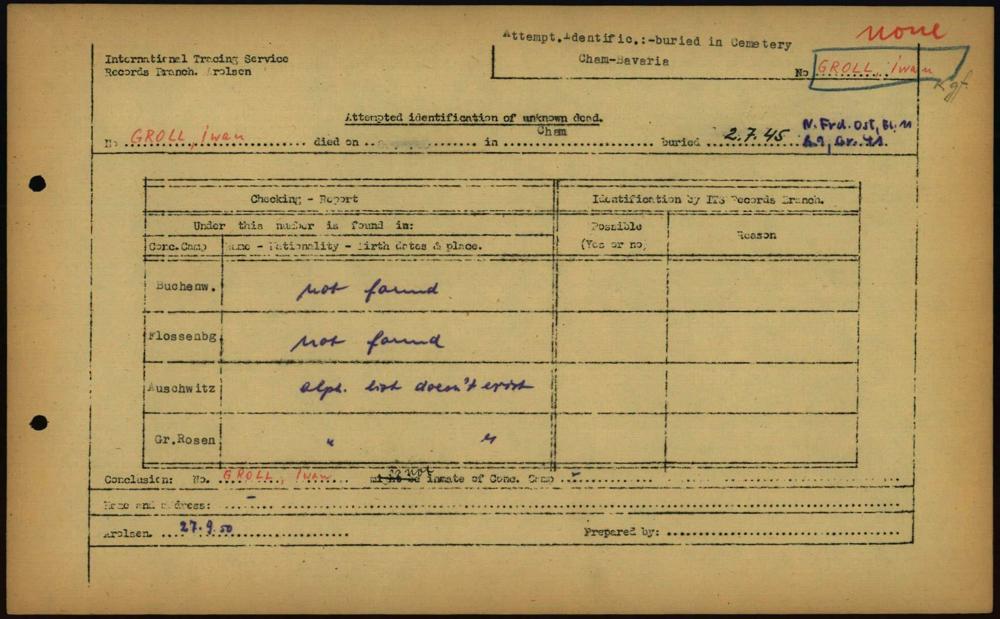 none
Attempt.identific.:-buried in Cemetery
Cham-Bavaria
International Tracing Service
Records Branch. Arolsen
No GROLL, iwan
Kgf.
Attempted identification of unknown dead.
No GROLL, iwan died on in Cham buried 2.7.45 N. Frd. Ost, Bl. 11
Conc.Camp
Checking - Report Identification by ITS Records Branch.
Under this number is found in: Possible Reason
Name - Nationality - Birth dates & place. (Yes or no)
Buchenw. not found
Flossenbg not found
Auschwitz alph. list doesn't exist
Gr.Rosen " "
Conclusion: No. GROLL, iwan might be is not inmate of Conc. Camp -
Name and address: -
Arolsen. 27.9.50 Prepared by: